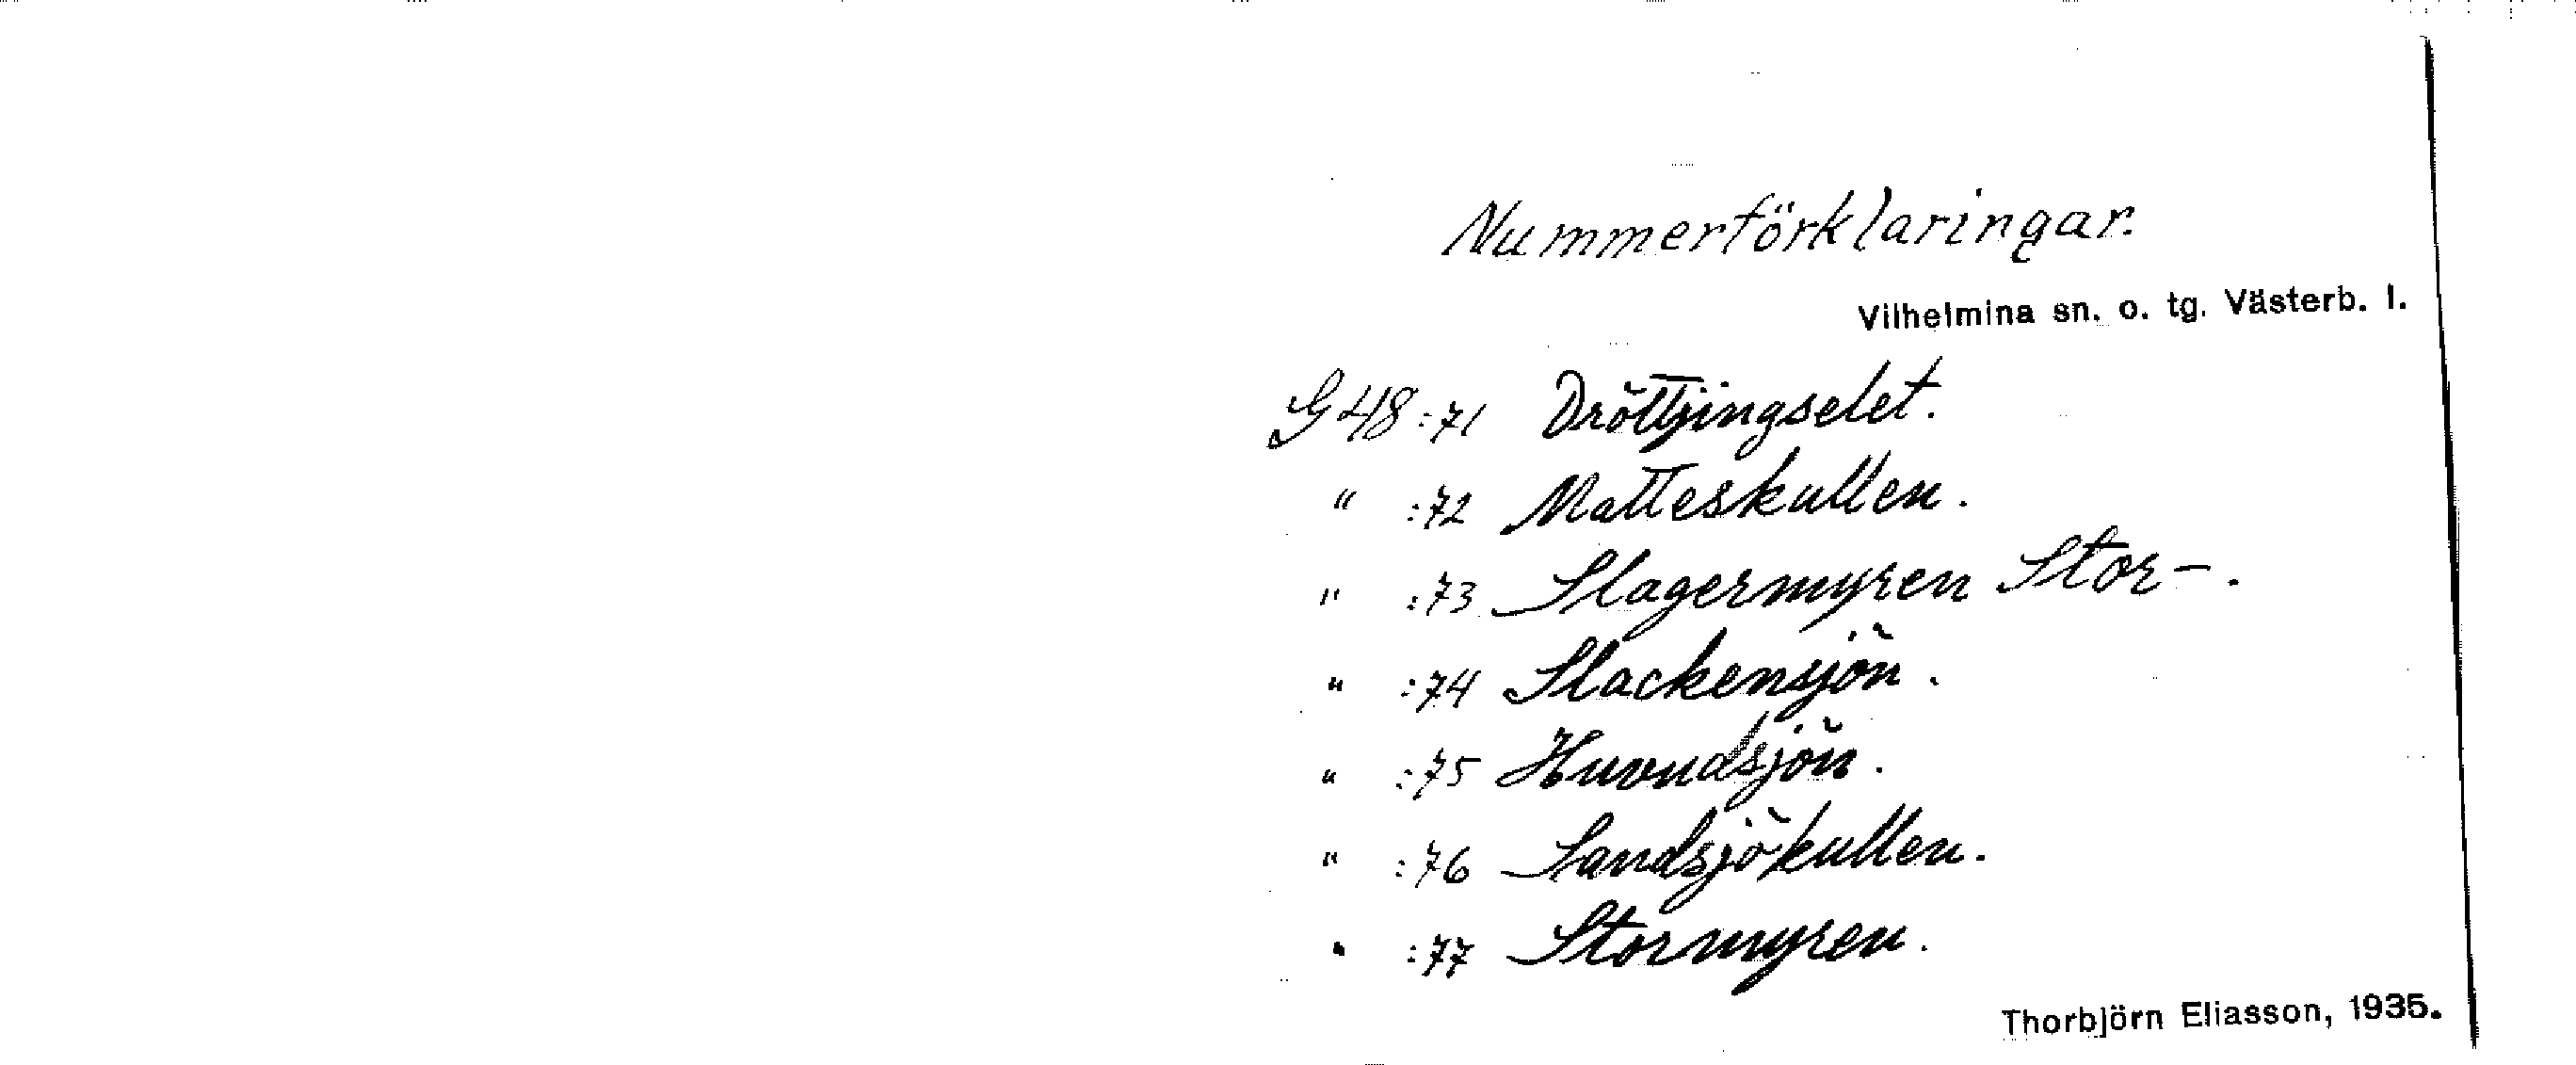 Nummerförklaringar.
Vilhelmina sn. o. tg. Västerb. l.
G 48 :71 Dröttjingselet.
" :72 Matteskullen.
" :73 Slagermyren Stor-.
" :74 Slackensjön.
" :75 Huvudsjön.
" :76 Sandsjökullen.
" :77 Stormyren.
Thorbjörn Eliasson, 1935.